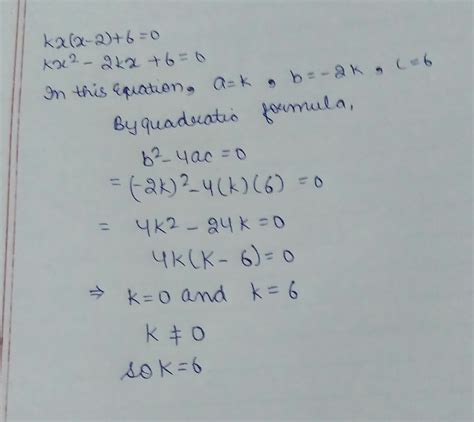 kx(x-2)+6=0
kx² - 2kx + 6 = 0
In this Equation, a=k, b=-2k, c=6
By quadratic formula,
b²-4ac = 0
= (-2k)²-4(k)(6) = 0
= 4k² - 24k = 0
4k(k-6) = 0
⇒ k=0 and k=6
k ≠ 0
so k=6